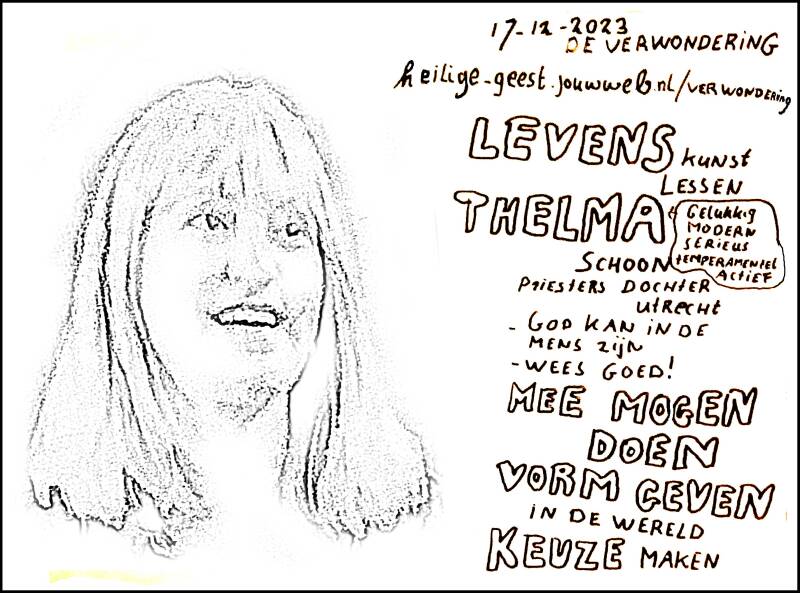 17-12-2023
DE VERWONDERING
heilige-geest.jouwweb.nl/VERWONDERing
LEVENS kunst
LESSEN
THELMA
Gelukkig
MODERN
SERIEUS
TEMPERAMENTEL
ACTIEF
SCHOON
PriESTERS DOCHTER
UtRECHT
- GOD KAN iN DE
MENS ZIJN
- WEES GOED!
MEE MOGEN
DOEN
VORM GEVEN
iN DE WERELD
KEUZE MAKEN